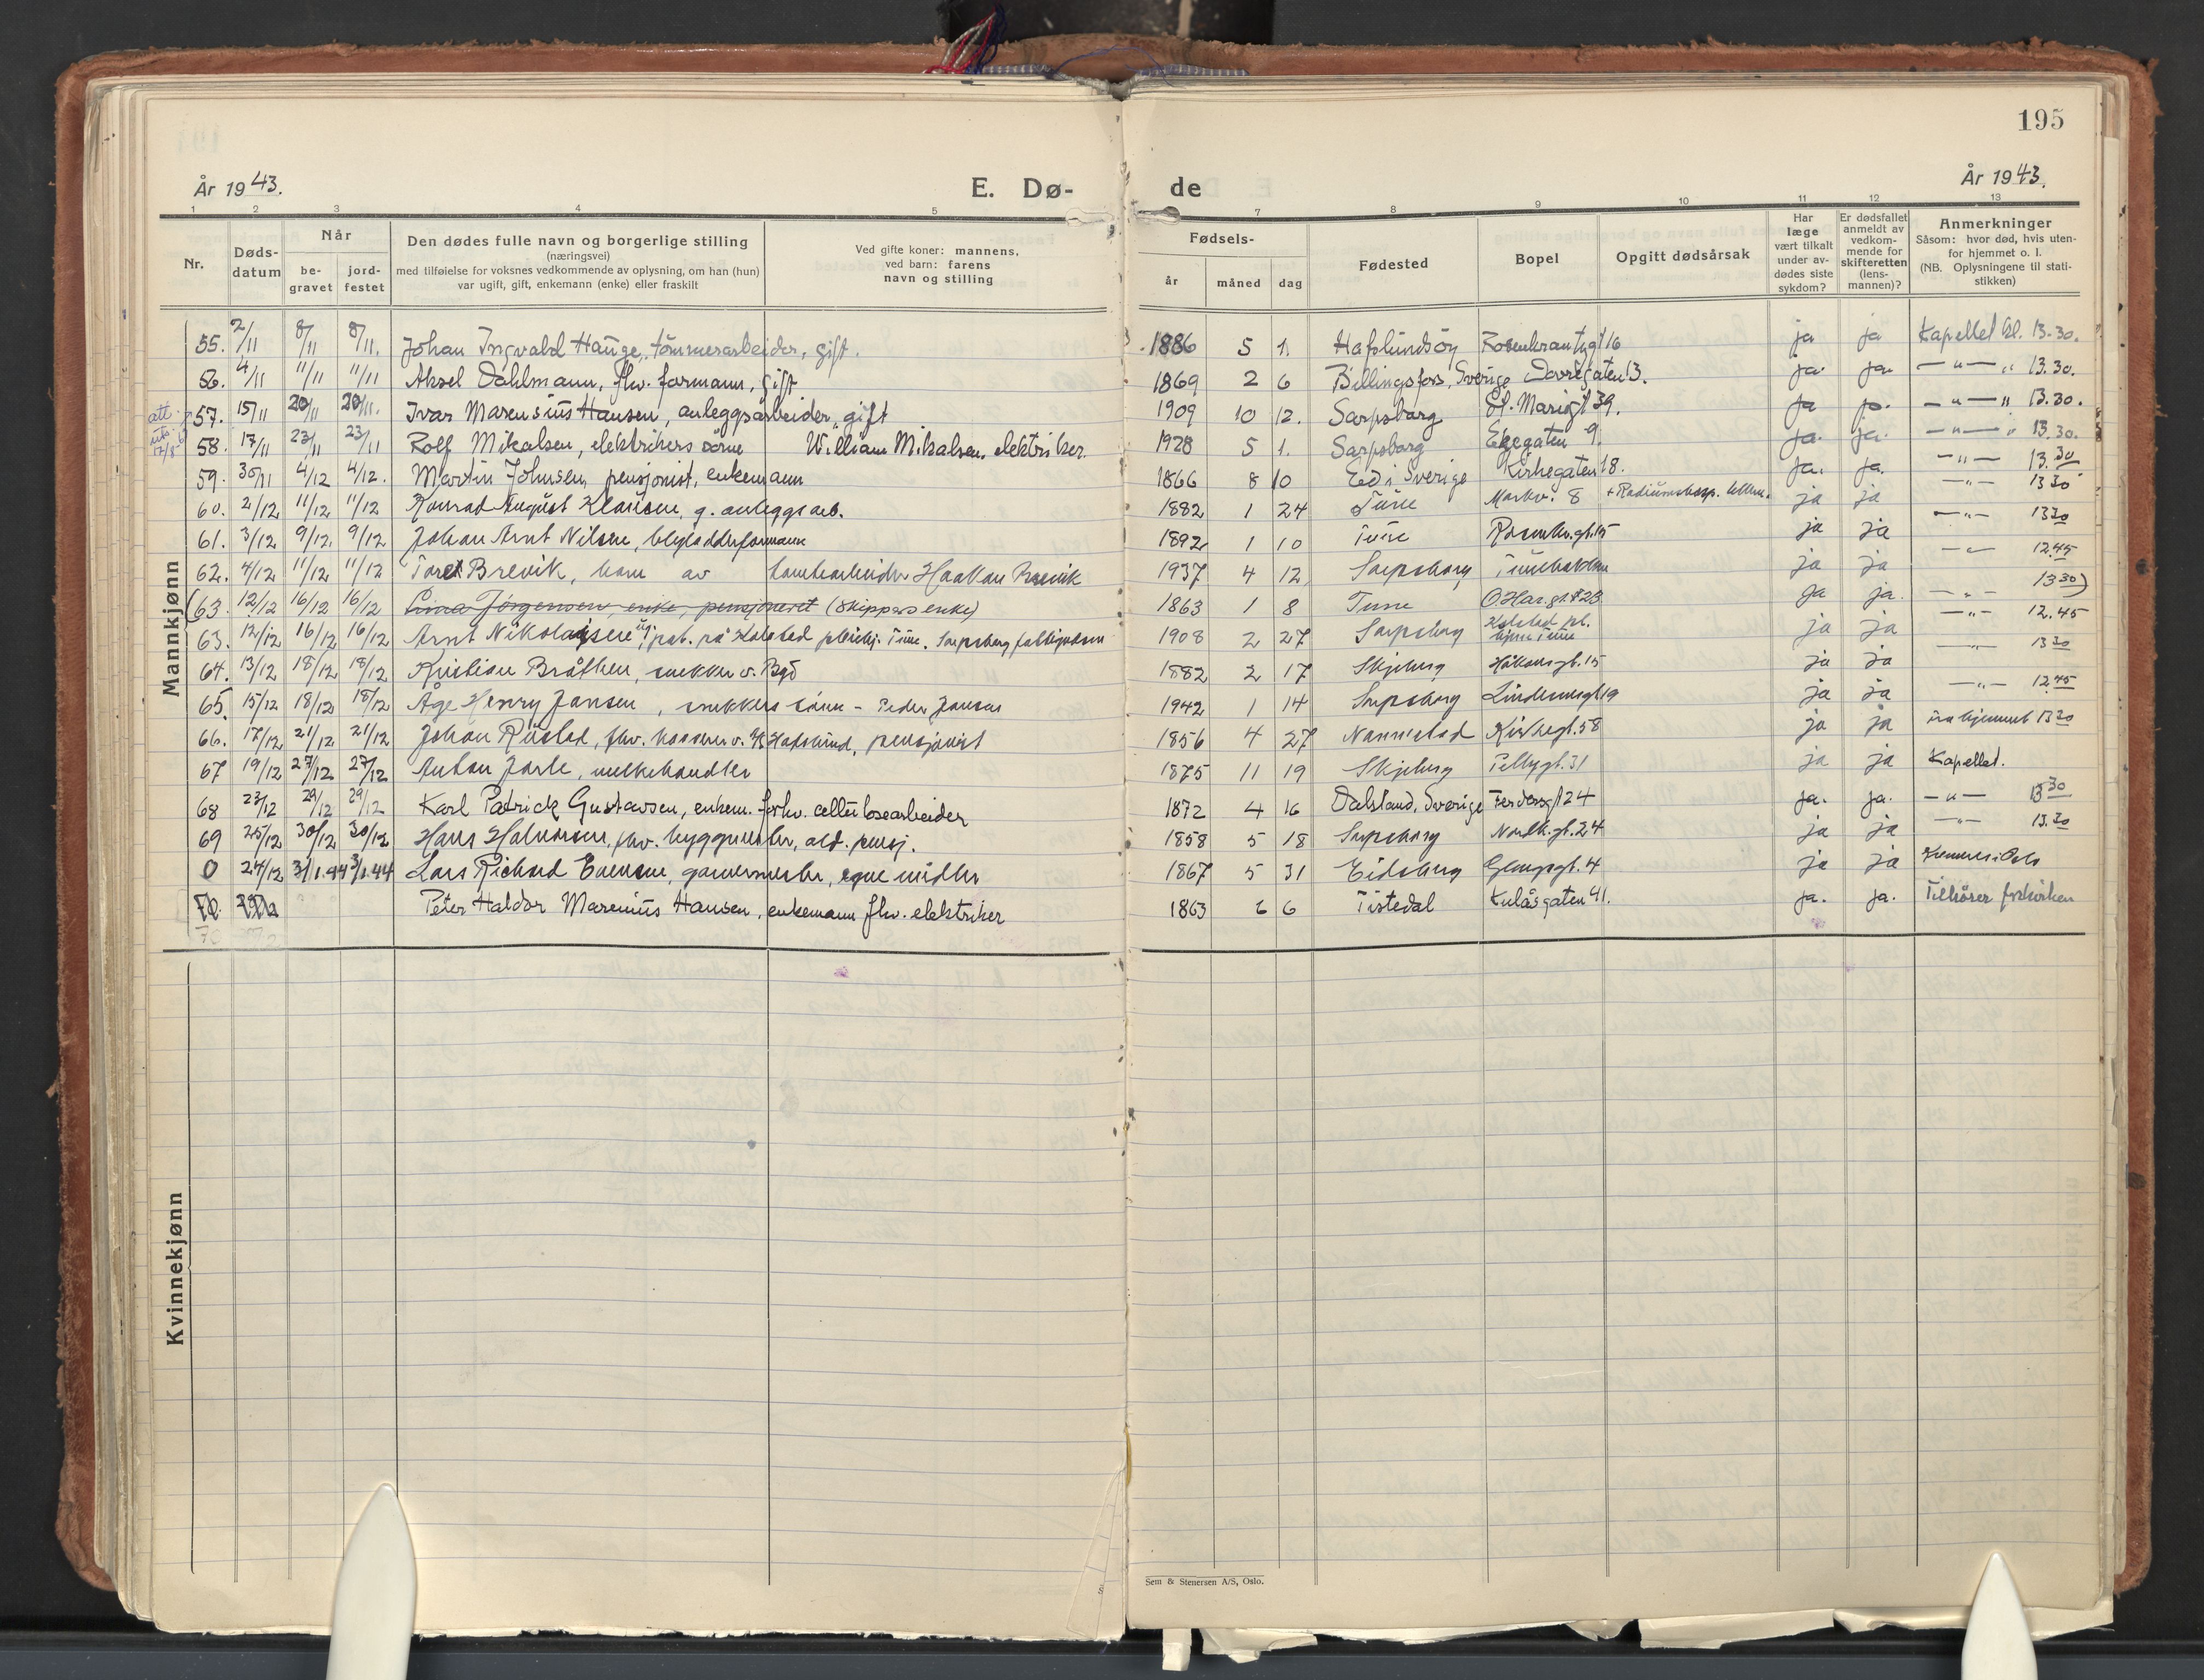 195
År 1943.
E. Dø- de
År 1943.
1 2 3 4 5 7 8 9 10 11 12 13
Nr.
Døds-
datum
Når
be-
gravet
jord-
festet
Den dødes fulle navn og borgerlige stilling
(næringsvei)
med tilføielse for voksnes vedkommende av oplysning, om han (hun)
var ugift, gift, enkemann (enke) eller fraskilt
Ved gifte koner: mannens,
ved barn: farens
navn og stilling
Fødsels-
år måned dag
Fødested
Bopel
Opgitt dødsårsak
Har
læge
vært tilkalt
under av-
dødes siste
sykdom?
Er dødsfallet
anmeldt av
vedkom-
mende for
skifteretten
(lens-
mannen)?
Anmerkninger
Såsom: hvor død, hvis uten-
for hjemmet o. l.
(NB. Oplysningene til stati-
stikken)
Mannkjønn
55. 2/11 8/11 8/11. Johan Ingvald Hauge, tömmerarbeider, gift. 1886 5 1. Hafslundsøy Rosenkrantzgt 16 ja ja Kapellet kl. 13.30.
56. 4/11 11/11 11/11 Aksel Dahlmann, fhv. formann, gift 1869 2 6 Billingsfors, Sverige Dovregaten 13. ja. ja. — " — " 13.30.
att. uts. 12/8
57. 15/11 20/11 20/11. Ivar Marensius Hansen, anleggsarbeider, gift 1909 10 12. Sarpsborg St. Mariegt 39. ja ja. — " — " 13.30.
58. 17/11 23/11 23/11 Rolf Mikalsen, elektrikers sönn William Mikalsen, elektriker. 1928 5 1. Sarpsborg Ekegaten 9. ja. ja. — " — " 13.30.
59. 30/11 4/12 4/12. Martin Johnsen, pensjonist, enkemann 1866 8 10 Ed i Sverige Kirkegaten 18. ja. ja. — " — 13.30
60. 2/12 11/12 11/12 Konrad August Klausen, g. anleggsarb. 1882 1 24 Tune Markv. 8 + Radiumshosp. ja ja — " — 13 30
61. 3/12 9/12. 9/12 Johan Arnt Nilsen, formann 1892 1 10 Tune Rosenkr.gt. 15 ja ja — " — 13 30
62. 4/12 11/12 11/12 Tore Brevik, barn av Haakon Brevik 1937 4 12 Sarpsborg Tunebakken ja ja — " — 12.45
(63. 12/12 16/12 16/12 Lina Jörgensen, enke, pensjonert (skippers enke) 1863 1 8 Tune O. Har.gt. 23 ja ja. — " — 13 30)
63. 12/12 16/12 16/12 Arnt Nikolaisen ug. pat. på Kalstad pleiehj. Tune. 1908 2 27 Sarpsborg Kalstad pl. hjem Tune ja ja — " — 12.45
64. 13/12 18/12 18/12 Kristian Bråthen, snekker v. Bgö 1882 2 17 Skjeberg Håkonsgt. 15 ja ja — " — 13 30
65. 15/12 18/12 18/12 Åge Henry Jansen, snekkers sönn - Peder Jansen 1942 1 14 Sarpsborg Lindemansgt 19 ja ja — " — 12 45
66. 17/12 21/12 21/12 Johan Rustad, fhv. v. Hafslund, pensjonist 1856 4 27 Nannestad Kirkegt. 58 ja ja fra hjemmet 13 30
67 19/12 27/12 27/12 Anton Jarle, melkehandler 1875 11 19 Skjeberg Pellygt. 31 ja ja Kapellet.
68 23/12 29/12 29/12 Karl Patrick Gustavsen, enkem. forhv. cellulosearbeider 1872 4 16 Dalsland, Sverige Ferdersgt 24 ja. ja. — " — 13 30
69 25/12 30/12 30/12 Hans Halvorsen, fhv. byggmester, ald. pensj. 1858 5 18 Sarpsborg Nordb.gt. 24 ja ja — " — 13.30
0 24/12 3/1.44 3/1.44 Lars Richard Evensen, garvermester, egne midler 1867 5 31 Eidsberg Glengsgt. 4 ja ja Kremeres i Oslo
70. Peter Haldor Marenius Hansen, enkemann fhv. elektriker 1863 6 6 Tistedal Kulåsgaten 41. ja. ja. Tilhører frikirken
Kvinnekjønn
Sem & Stenersen A/S, Oslo.